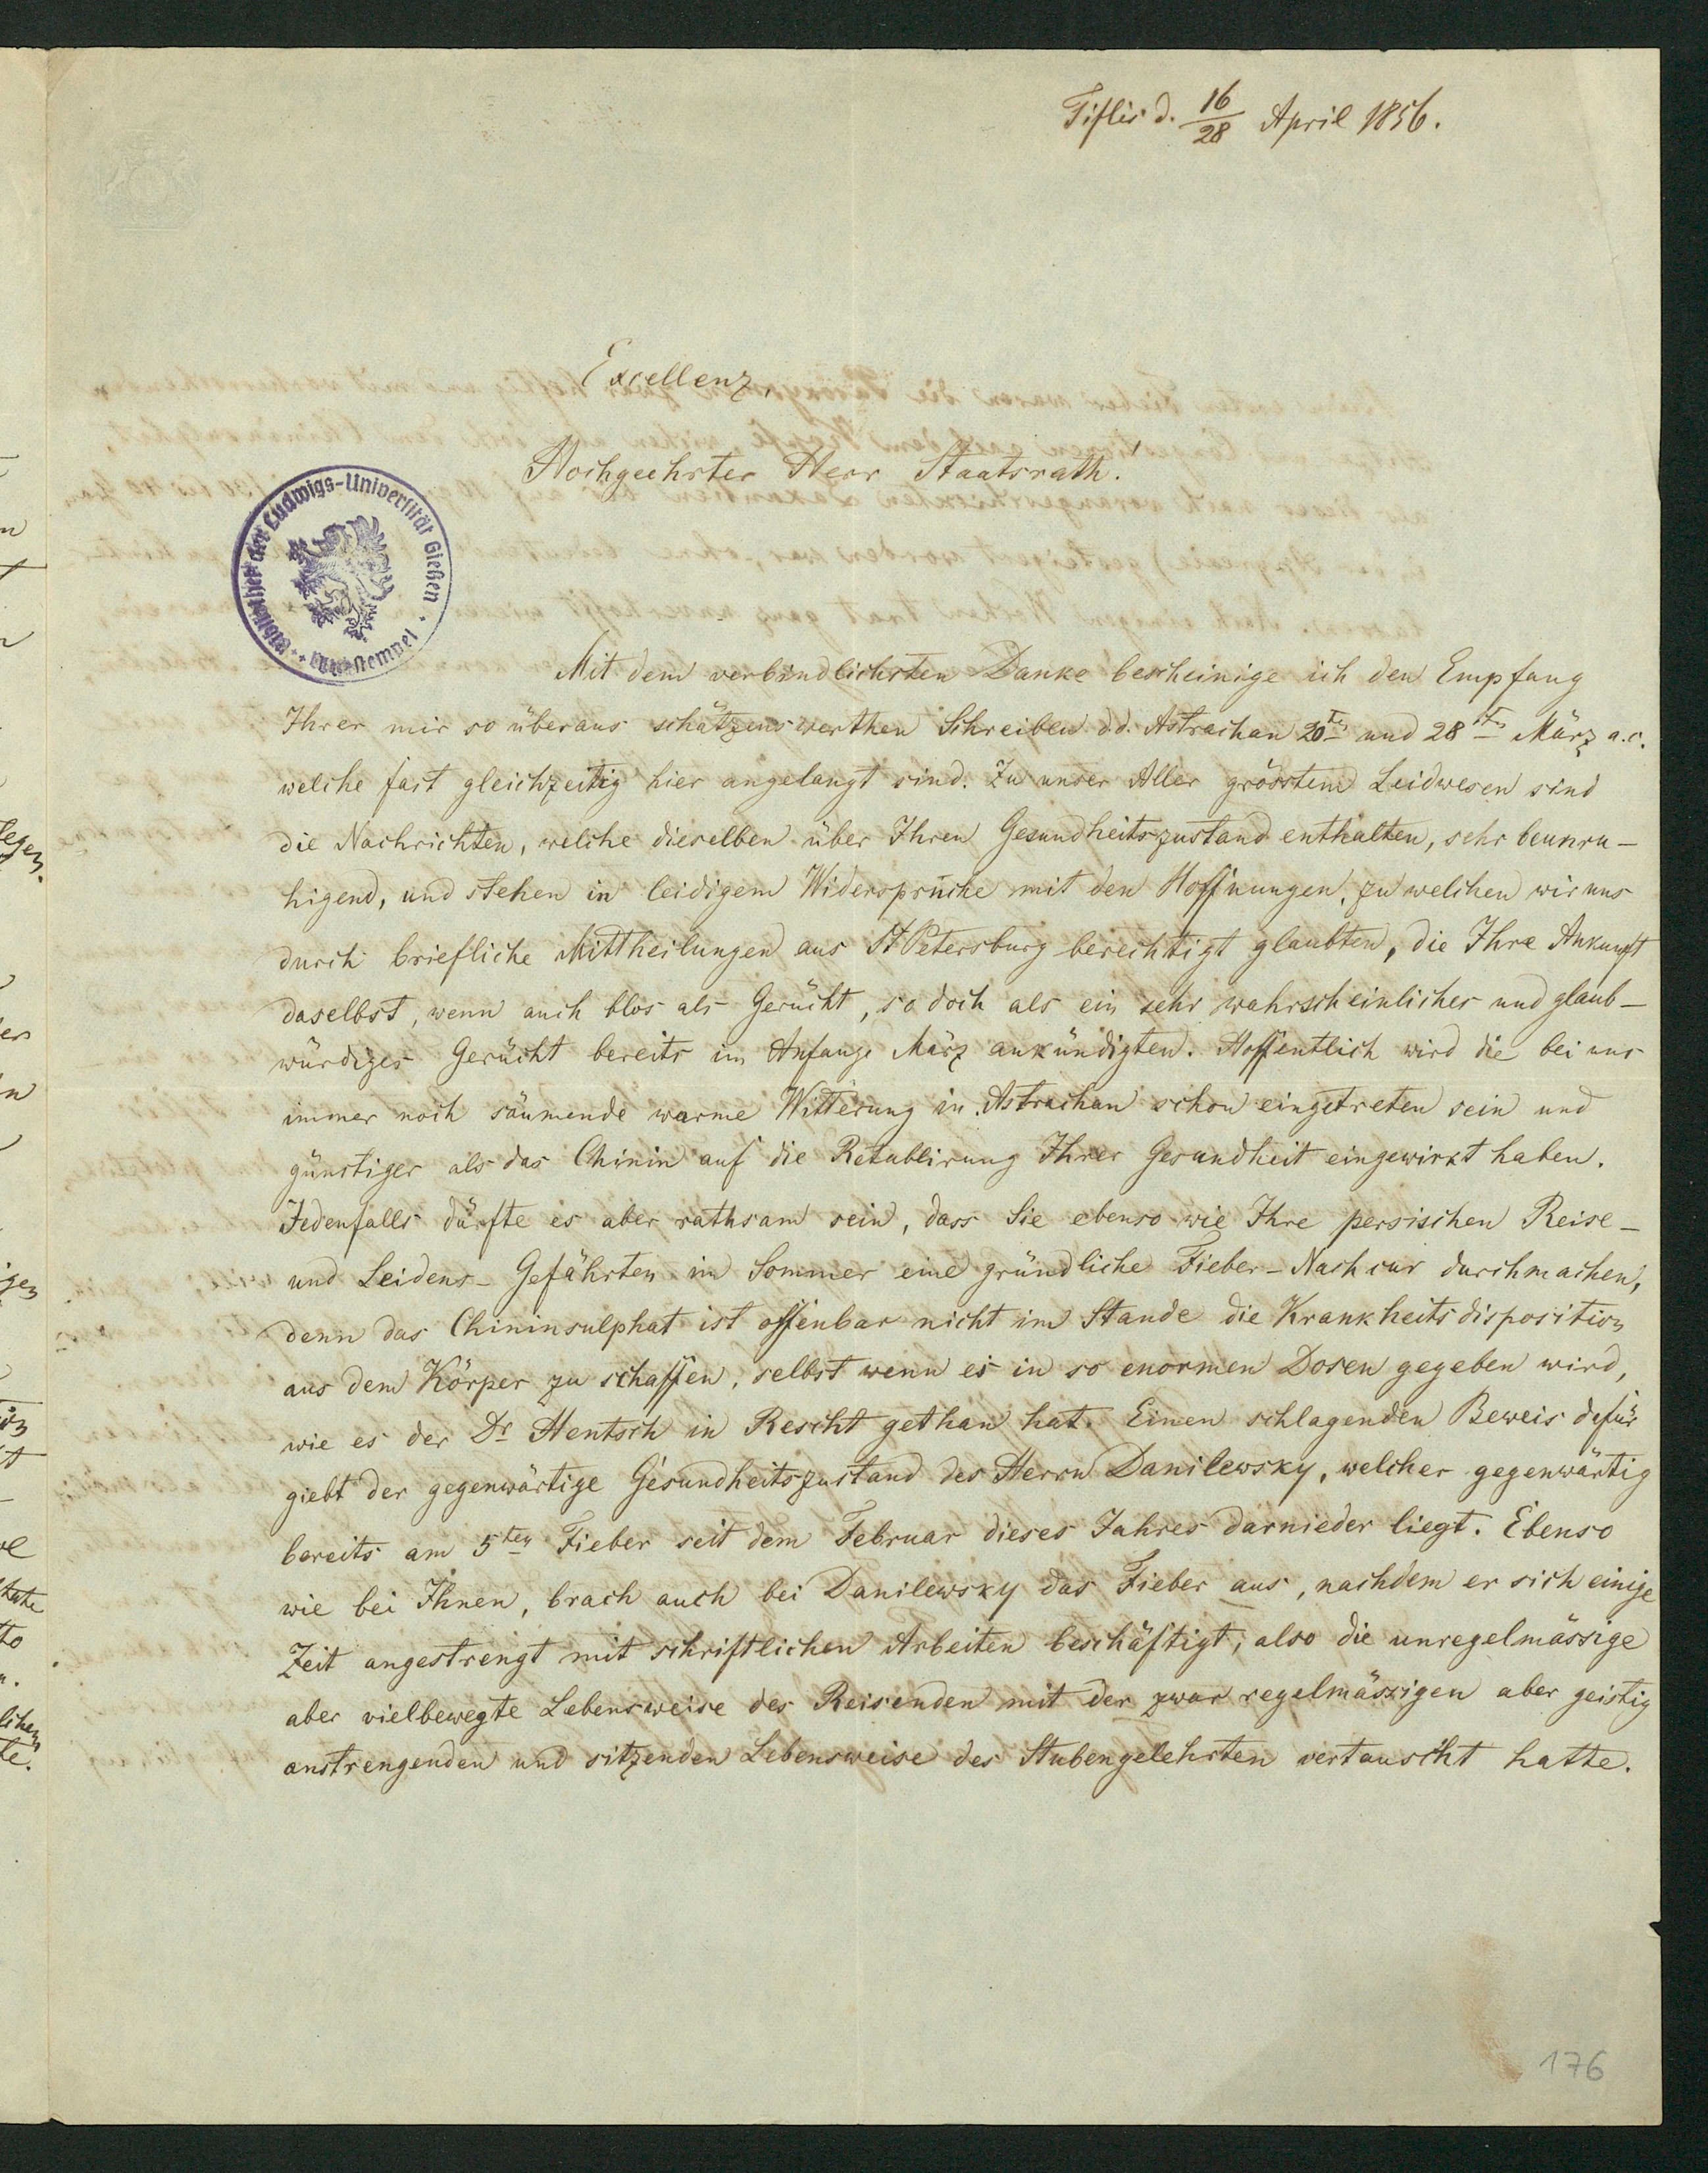 Tiflis d. 16/28 April 1856.
Excellenz,
Hochgeehrter Herr Staatsrath!
Bibliothek der Ludwigs-Universität Gießen
Mit dem verbindlichsten Danke bescheinige ich den Empfang
Ihrer mir so überaus schätzenswerthen Schreiben d.d. Astrachan 20ten und 28sten März a.c.
welche fast gleichzeitig hier angelangt sind. Zu unser Aller grösstem Leidwesen sind
die Nachrichten, welche dieselben über Ihren Gesundheitszustand enthalten, sehr beunru-
higend, und stehen in leidigem Widerspruche mit den Hoffnungen, zu welchen wir uns
durch briefliche Mittheilungen aus St Petersburg berechtigt glaubten, die Ihre Ankunft
daselbst, wenn auch blos als Gerücht, so doch als ein sehr wahrscheinliches und glaub-
würdiges Gerücht bereits im Anfange März ankündigten. Hoffentlich wird die bei uns
immer noch säumende warme Witterung in Astrachan schon eingetreten sein und
günstiger als das Chinin auf die Retablirung Ihrer Gesundheit eingewirkt haben.
Jedenfalls dürfte es aber rathsam sein, dass Sie ebenso wie Ihre persischen Reise-
und Leidens-Gefährten im Sommer eine gründliche Fieber-Nachcur durchmachen,
denn das Chininsulphat ist offenbar nicht im Stande die Krankheitsdisposition
aus dem Körper zu schaffen, selbst wenn es in so enormen Dosen gegeben wird,
wie es der Dr Hentsch in Rescht gethan hat. Einen schlagenden Beweis dafür
giebt der gegenwärtige Gesundheitszustand des Herrn Danilewsky, welcher gegenwärtig
bereits am 5ten Fieber seit dem Februar dieses Jahres darnieder liegt. Ebenso
wie bei Ihnen, brach auch bei Danilewsky das Fieber aus, nachdem er sich einige
Zeit angestrengt mit schriftlichen Arbeiten beschäftigt, also die unregelmässige
aber vielbewegte Lebensweise des Reisenden mit der zwar regelmässigen aber geistig
anstrengenden und sitzenden Lebensweise des Stubengelehrten vertauscht hatte.
176